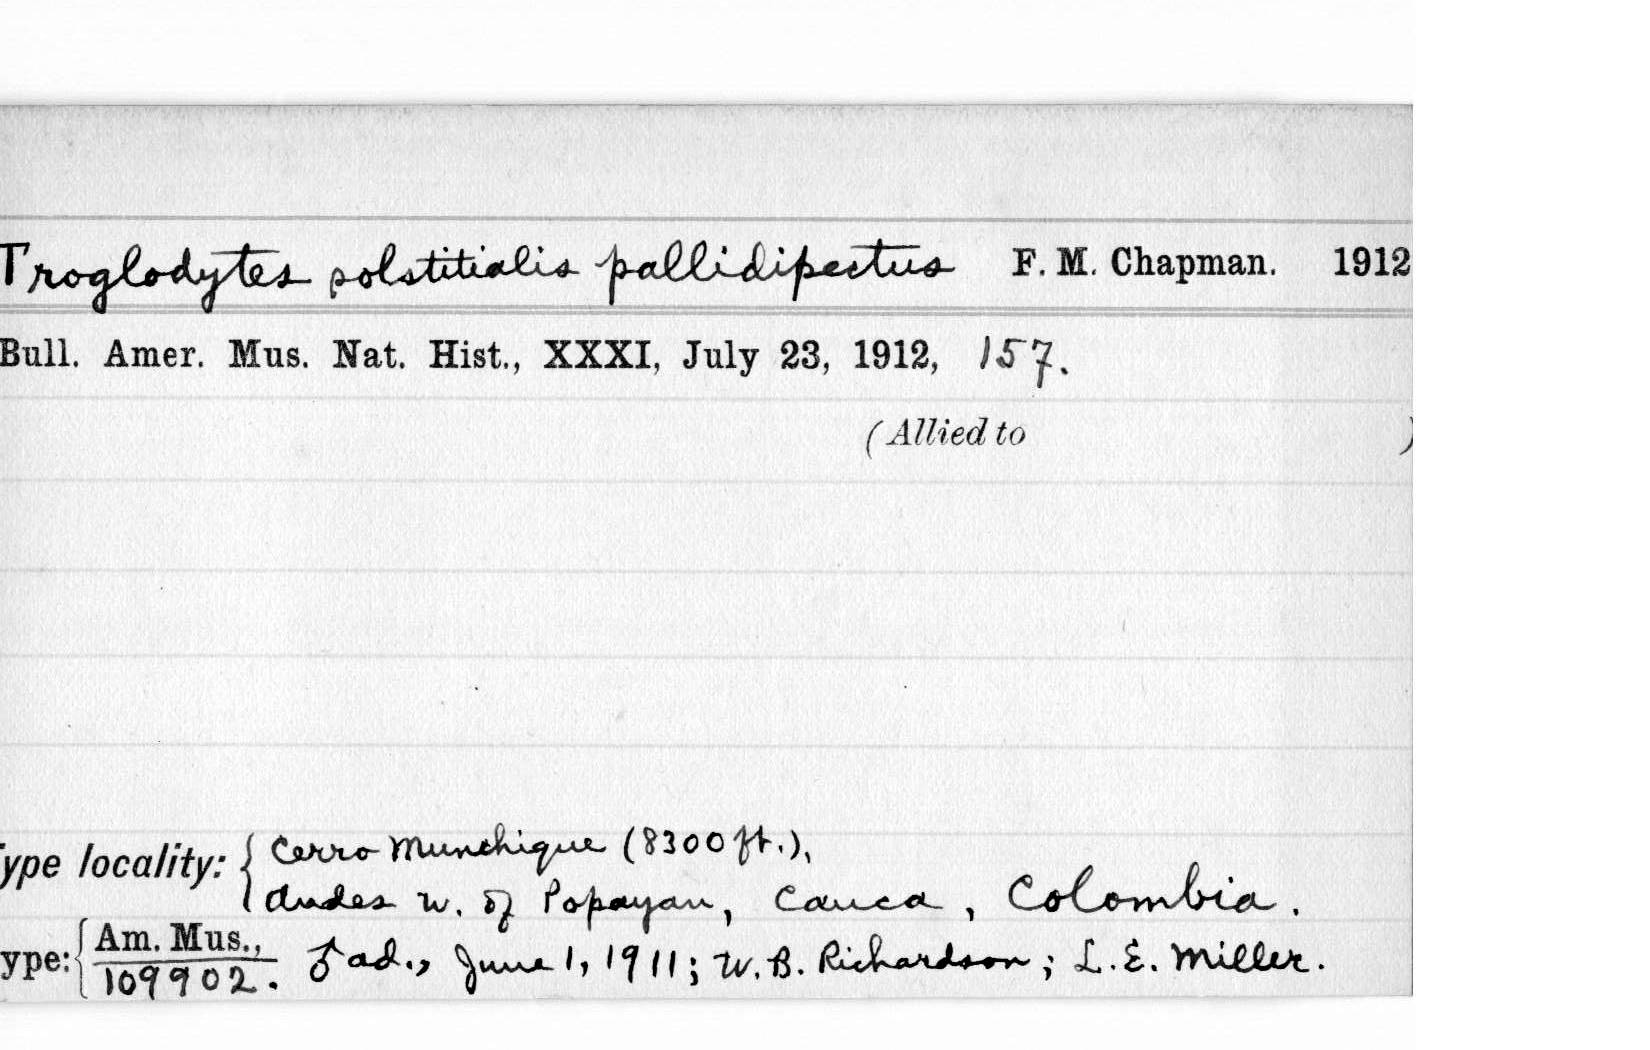 Troglodytes solstitialis pallidipectus F. M. Chapman. 1912
Bull. Amer. Mus. Nat. Hist., XXXI, July 23, 1912, 157.
(Allied to )
ype locality: { Cerro Munchique (8300 ft.),
Andes w. of Popayan, Cauca, Colombia.
ype: { Am. Mus., 
109902. ♂ ad., June 1, 1911; W. B. Richardson; L. E. Miller.